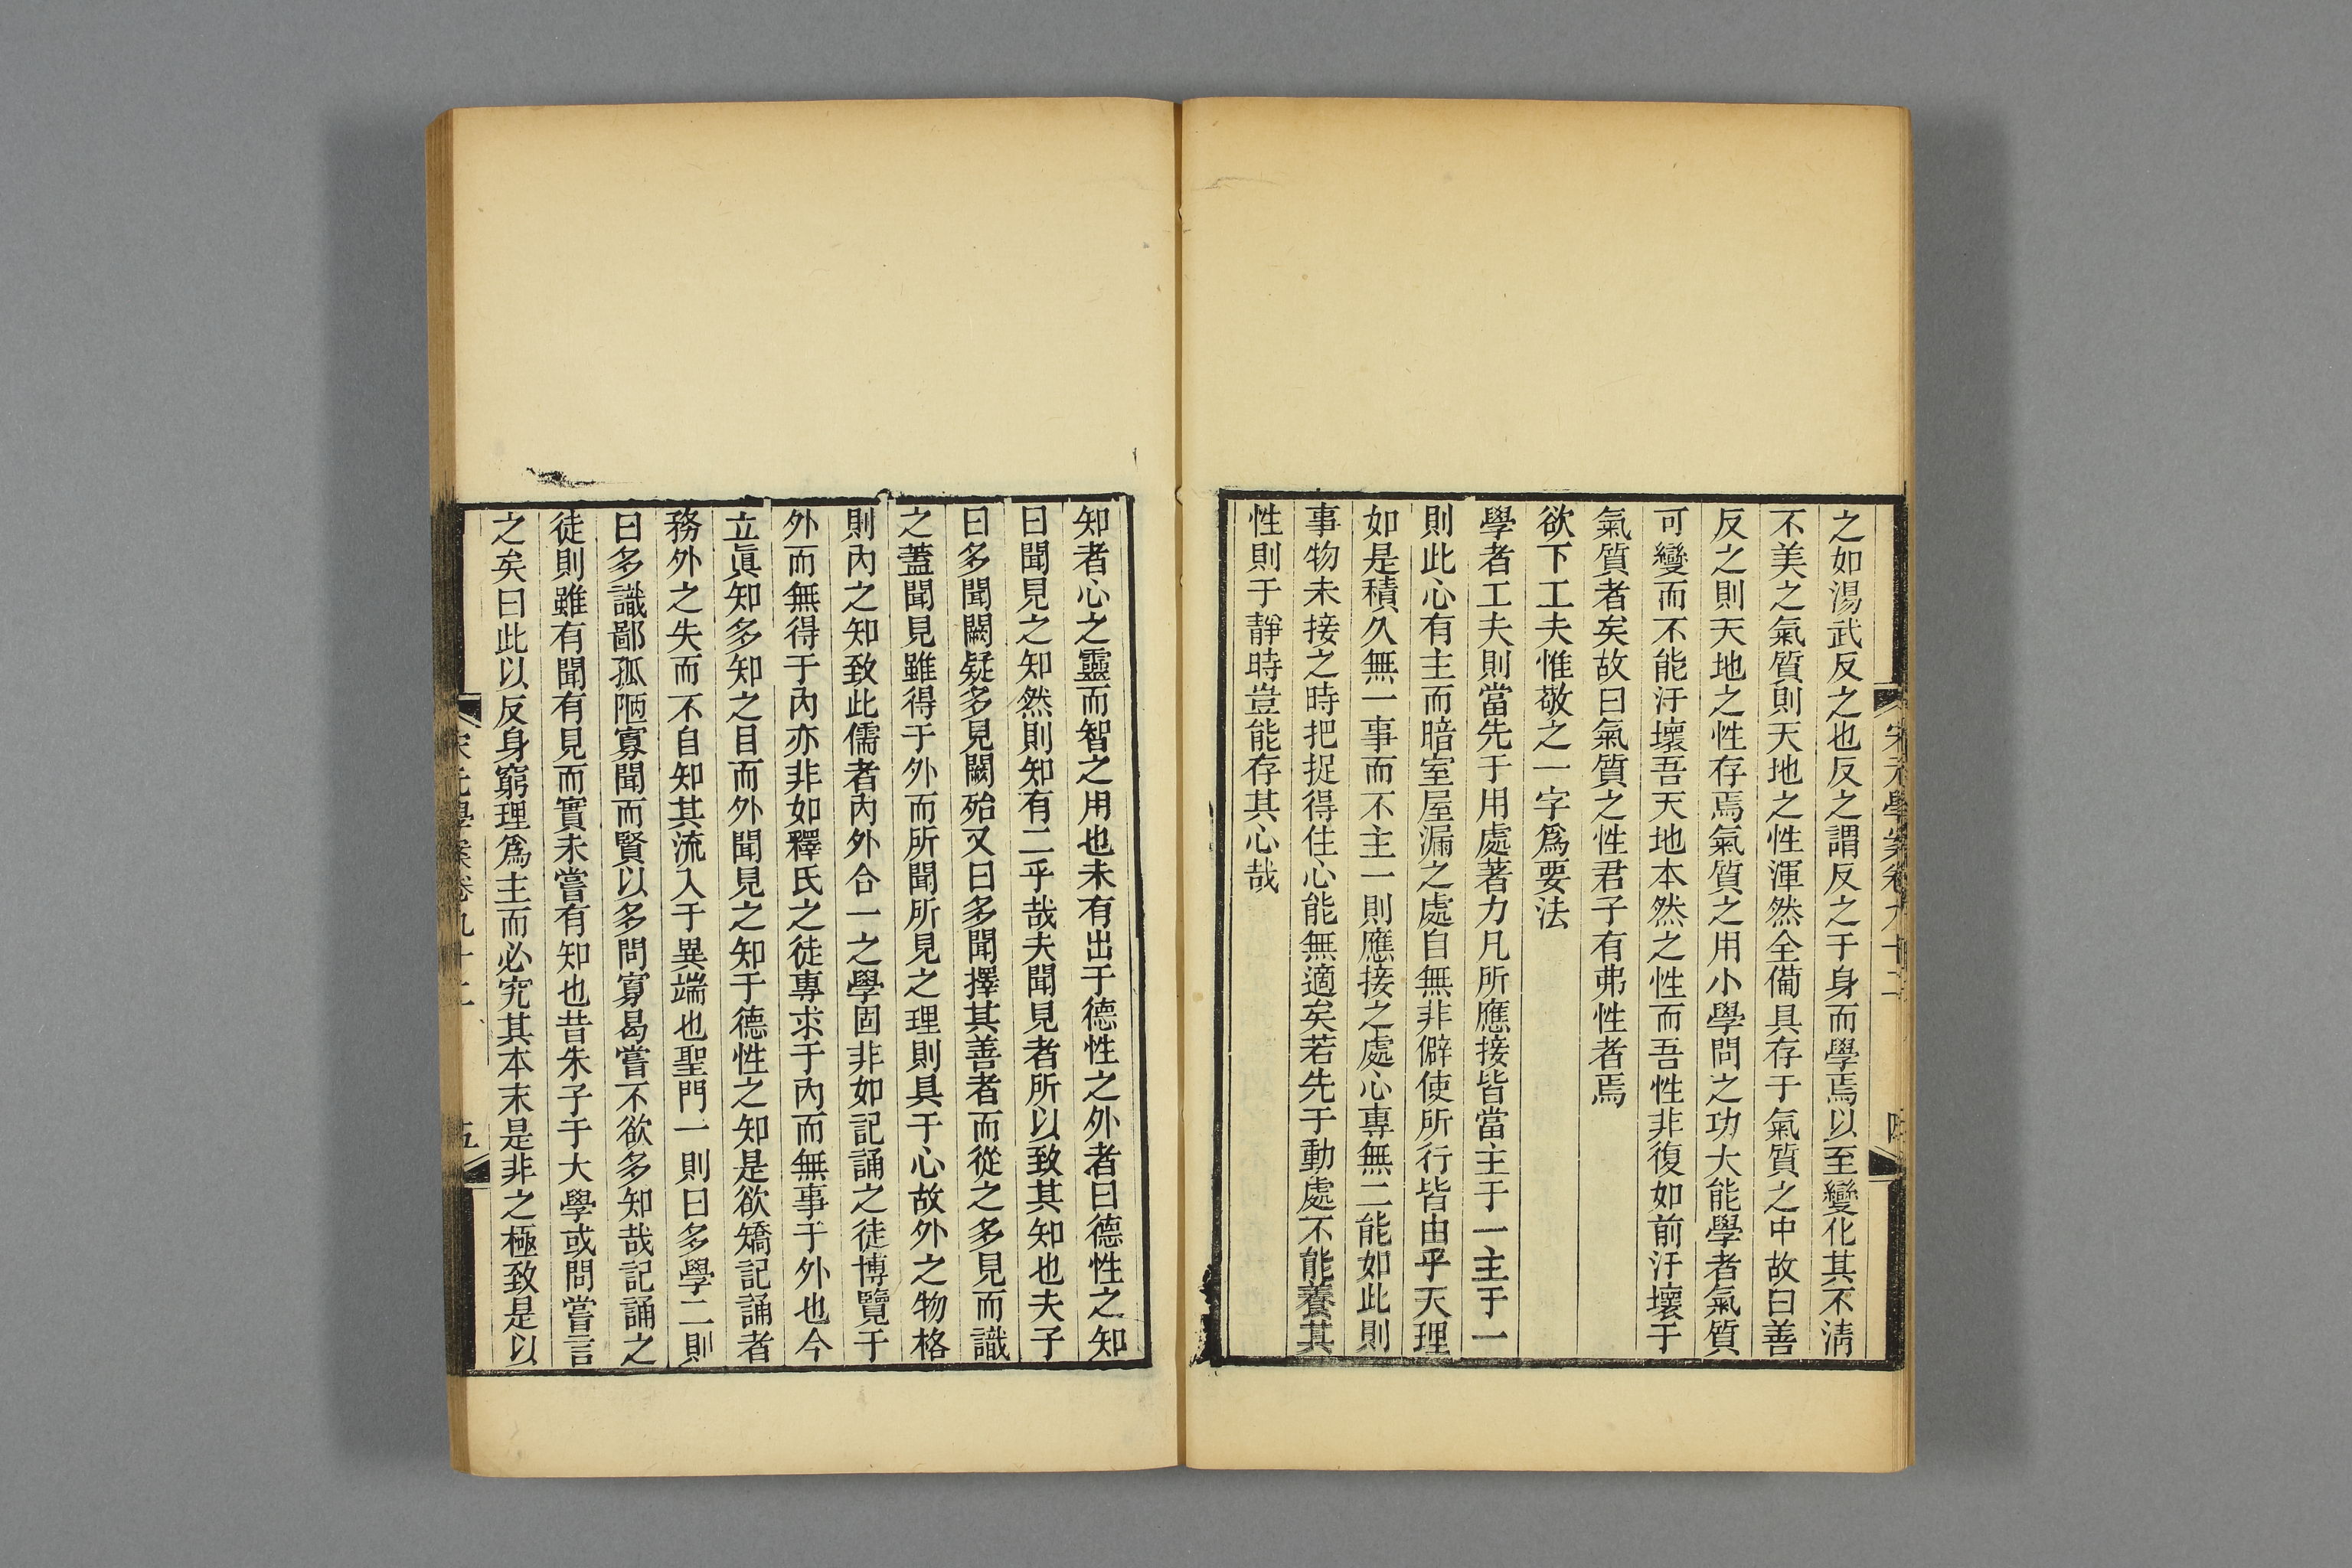 之如湯武反之也反之謂反之于身而學焉以至變化其不淸
不美之氣質則天地之性渾然全備具存于氣質之中故曰善
反之則天地之性存焉氣質之用小學問之功大能學者氣質
可變而不能汙壞吾天地本然之性而吾性非復如前汙壞于
氣質者矣故曰氣質之性君子有弗性者焉
欲下工夫惟敬之一字爲要法
學者工夫則當先于用處著力凡所應接皆當主于一主于一
則此心有主而暗室屋漏之處自無非僻使所行皆由乎天理
如是積久無一事而不主一則應接之處心專無二能如此則
事物未接之時把捉得住心能無適矣若先于動處不能養其
性則于靜時豈能存其心哉
知者心之靈而智之用也未有出于德性之外者曰德性之知
曰聞見之知然則知有二乎哉夫聞見者所以致其知也夫子
曰多聞闕疑多見闕殆又曰多聞擇其善者而從之多見而識
之蓋聞見雖得于外而所聞所見之理則具于心故外之物格
則內之知致此儒者內外合一之學固非如記誦之徒博覽于
外而無得于內亦非如釋氏之徒專求于內而無事于外也今
立眞知多知之目而外聞見之知于德性之知是欲矯記誦者
務外之失而不自知其流入于異端也聖門一則曰多學二則
曰多識鄙孤陋寡聞而賢以多問寡曷嘗不欲多知哉記誦之
徒則雖有聞有見而實未嘗有知也昔朱子于大學或問嘗言
之矣曰此以反身窮理爲主而必究其本末是非之極致是以
宋元學案卷九十二
五